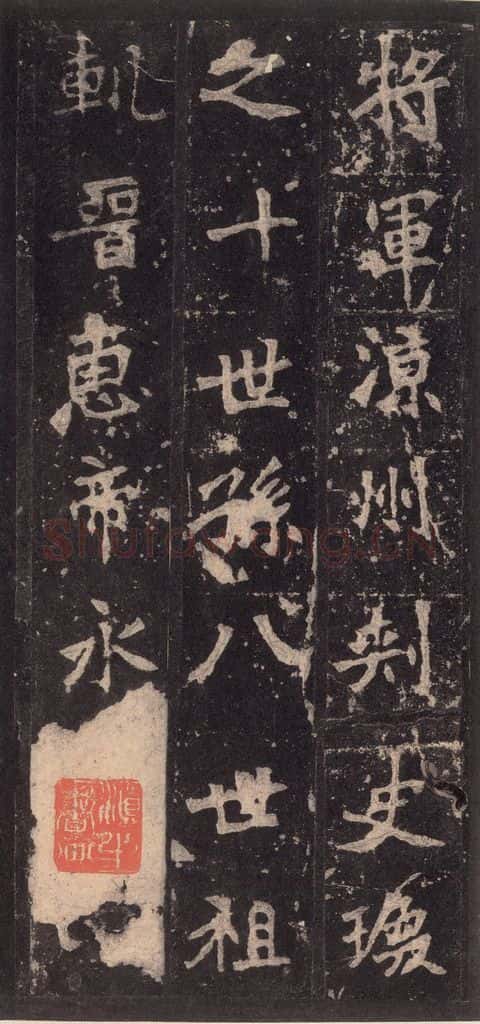 將軍涼州刺史瑍
之十世孫八世祖
軌晉惠帝永
Shufawang.CN